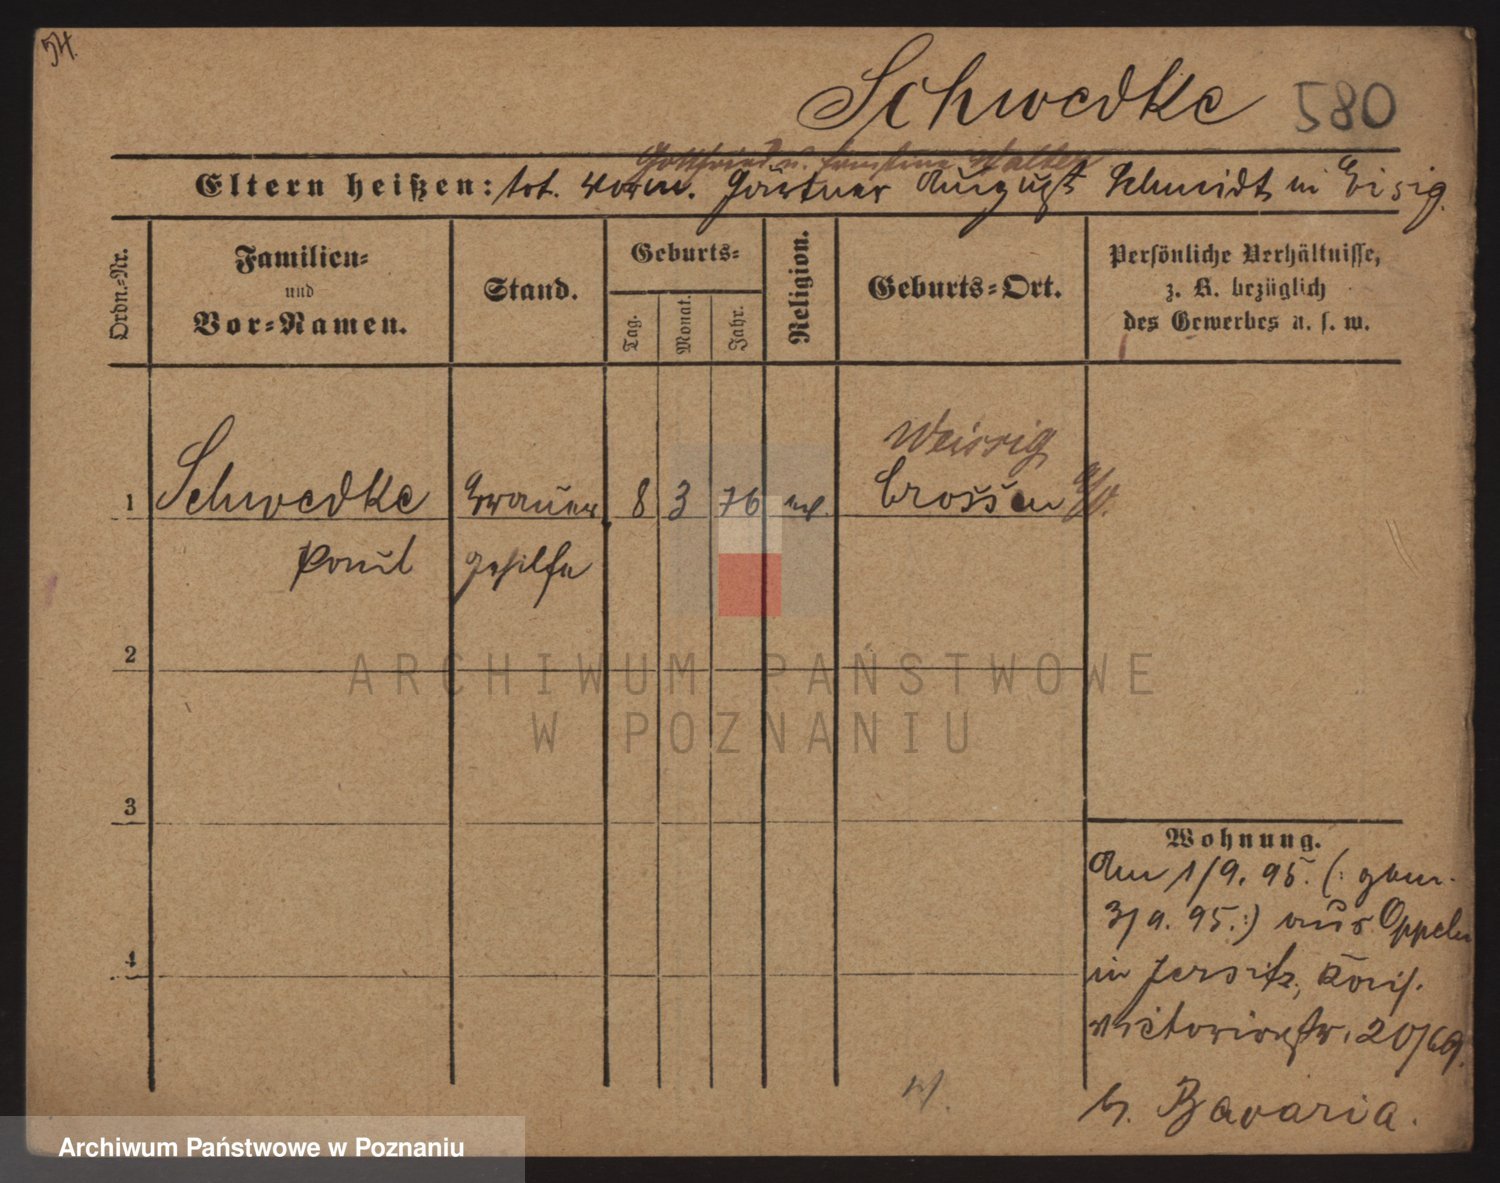 54.
Schwedke 580
Gottfried u. Ernstine Walter
Eltern heißen: tot. Vorm. Gärtner August Schmidt in Eisig.
Ordn.-Nr.
Familien-
und
Vor-Namen.
Stand.
Geburts-
Tag.
Monat.
Jahr.
Religion.
Geburts-Ort.
Persönliche Verhältnisse,
z. B. bezüglich
des Gewerbes u. s. w.
Weissig
1 Schwedke Brauer 8 3 76 ev. Crossen a/O.
Paul gehilfe
2
3
4
Wohnung.
Am 1/9. 95. (: gem.
3/9. 95.:) aus Oppeln
in Jersitz, Kais.
Victoriastr. 20/69.
b. Bavaria.
ARCHIWUM PAŃSTWOWE
W POZNANIU
Archiwum Państwowe w Poznaniu